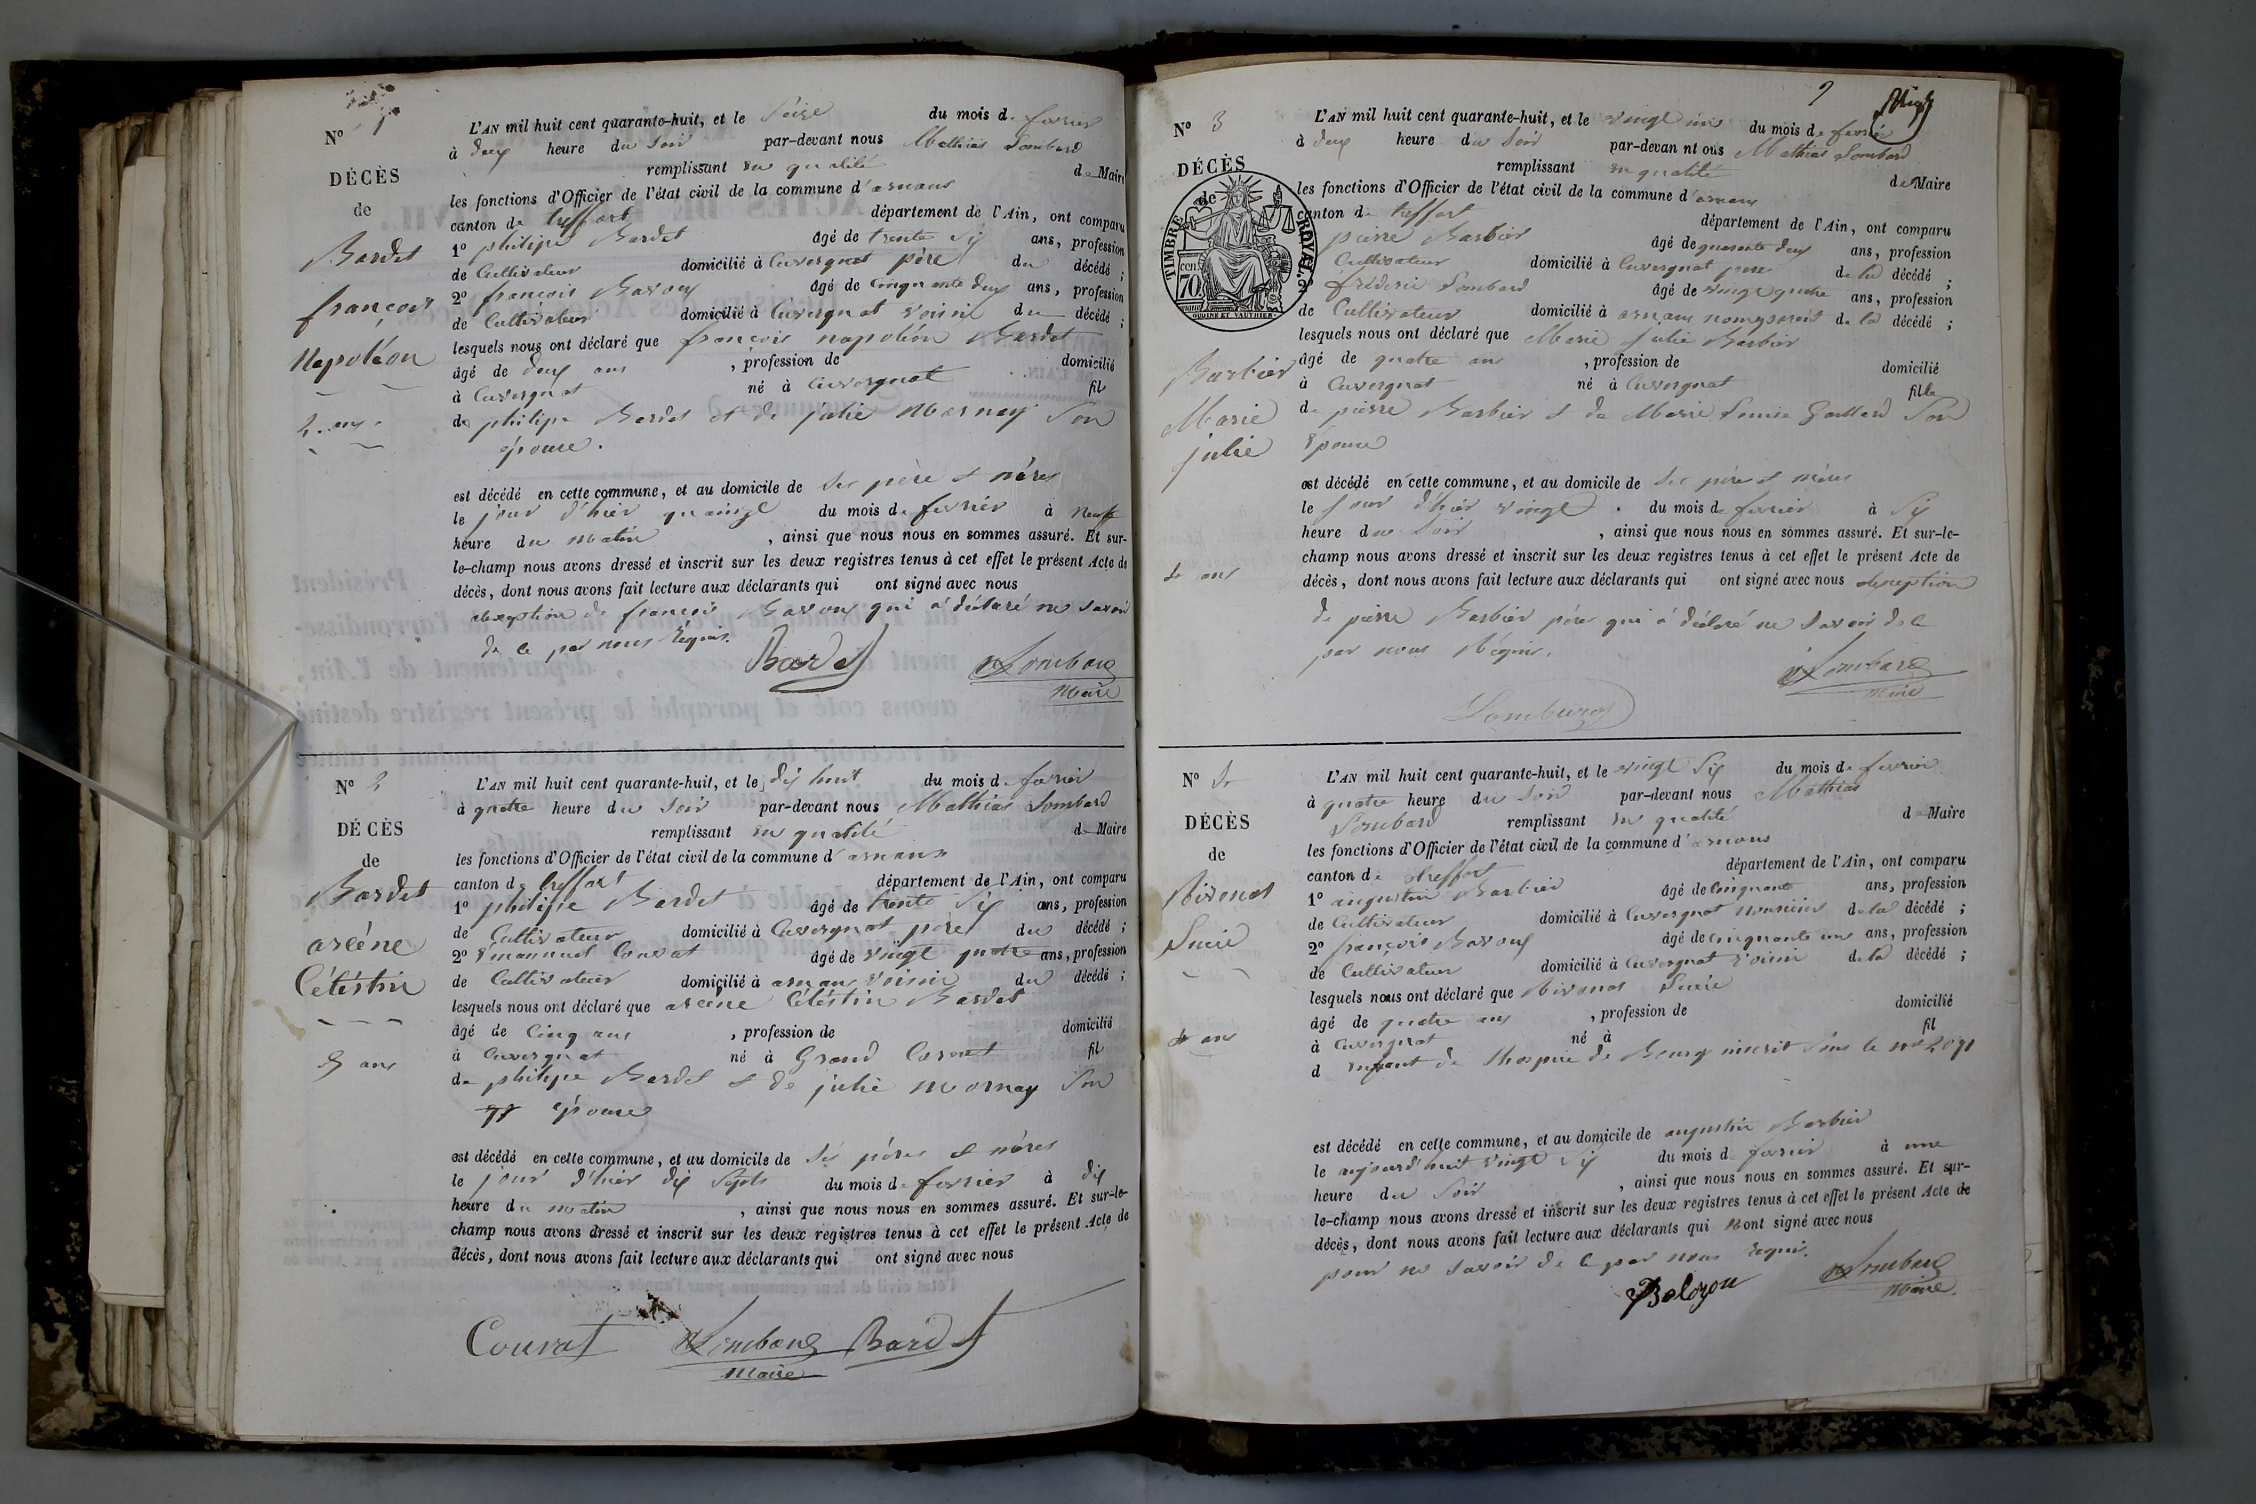 N° 1
DÉCÈS
de
Bardet
françois
Napoléon
2 ans
L'AN mil huit cent quarante-huit, et le Seize du mois de fevrier
à deux heure du Soir par-devant nous Mathias Lombard
remplissant en qualité de Maire
les fonctions d'Officier de l'état civil de la commune d'arnans
canton de treffort département de l'Ain, ont comparu
1° philipe Bardet âgé de trente Six ans, profession
de Cultivateur domicilié à Cuvergnat père du décédé ;
2° françois Baroux âgé de Cinquante deux ans, profession
de Cultivateur domicilié à Cuvergnat voisin du décédé ;
lesquels nous ont déclaré que françois napoléon Bardet
âgé de deux ans , profession de domicilié
à Cuvergnat né à Cuvergnat fil
de philipe Bardet et de julie Mornay Son
épouse.
est décédé en cette commune, et au domicile de Ses père et mères
le jour d'hier quainze du mois de fevrier à neuf
heure du matin , ainsi que nous nous en sommes assuré. Et sur-
le-champ nous avons dressé et inscrit sur les deux registres tenus à cet effet le présent Acte de
décès, dont nous avons fait lecture aux déclarants qui ont signé avec nous
alexeption de françois Baroux qui a déclaré ne Savoir
de ce par nous Réquis.
Bardet Lombard
Maire
N° 2
DÉCÈS
de
Bardet
arcéne
Céléstin
5 ans
L'AN mil huit cent quarante-huit, et le dix huit du mois de fevrier
à quatre heure du Soir par-devant nous Mathias Lombard
remplissant en qualité de Maire
les fonctions d'Officier de l'état civil de la commune d'arnans
canton de treffort département de l'Ain, ont comparu
1° philipe Bardet âgé de trente Six ans, profession
de Cultivateur domicilié à Cuvergnat père du décédé ;
2° Emannuel Couvat âgé de vingt quatre ans, profession
de Cultivateur domicilié à arnans voisin du décédé ;
lesquels nous ont déclaré que arcéne Céléstin Bardet
âgé de Cinq ans , profession de domicilié
à Cuvergnat né à Grand Corent fil
de philipe Bardet et de julie mornay Son
épouse
est décédé en cette commune, et au domicile de Sés péres et mères
le jour d'hier dix Septs du mois de fevrier à dix
heure du matin , ainsi que nous nous en sommes assuré. Et sur-le-
champ nous avons dressé et inscrit sur les deux registres tenus à cet effet le présent Acte de
décès, dont nous avons fait lecture aux déclarants qui ont signé avec nous
Couvat Lombard Bardet
Maire
2
N° 3
DÉCÈS
de
TIMBRE ROYAL
cen. 70
Barbier
Marie
julie
4 ans
L'AN mil huit cent quarante-huit, et le vingt un du mois de fevrié
à deux heure du Soir par-devan nt ous Mathias Lombard
remplissant en qualité de Maire
les fonctions d'Officier de l'état civil de la commune d'arnans
canton de treffort département de l'Ain, ont comparu
pierre Barbier âgé de quarente deux ans, profession
Cultivateur domicilié à Cuvergnat pere de la décédé ;
fréderic Lombard âgé de vingt quatre ans, profession
de Cultivateur domicilié à arnans de la décédé ;
lesquels nous ont déclaré que Marie julie Barbier
âgé de quatre ans , profession de domicilié
à Cuvergnat né à Cuvergnat fille
de pierre Barbier et de Marie Louise Gaillard Son
épouse
est décédé en cette commune, et au domicile de Ses père et mères
le jour d'hier vingt du mois de fevrier à Six
heure du Soir , ainsi que nous nous en sommes assuré. Et sur-le-
champ nous avons dressé et inscrit sur les deux registres tenus à cet effet le présent Acte de
décès, dont nous avons fait lecture aux déclarants qui ont signé avec nous alexeption
de pierre Barbier père qui a déclaré ne Savoir de ce
par nous Réquis.
Lombard
Maire
Lombard
N° 4
DÉCÈS
de
Lucie
4 ans
L'AN mil huit cent quarante-huit, et le vingt Six du mois de fevrier
à quatre heure du Soir par-devant nous Mathias
Lombard remplissant en qualité de Maire
les fonctions d'Officier de l'état civil de la commune d'arnans
canton de treffort département de l'Ain, ont comparu
1° augustin Barbier âgé de Cinquante ans, profession
de Cultivateur domicilié à Cuvergnat nouricier de la décédé ;
2° françois Baroux âgé de Cinquante un ans, profession
de Cultivateur domicilié à Cuvergnat voisin de la décédé ;
lesquels nous ont déclaré que Lucie
âgé de quatre ans , profession de domicilié
à Cuvergnat né à fil
d enfant de lhospice de Bourg inscrit Sous le n° 2071
est décédé en cette commune, et au domicile de augustin Barbier
le aujourd'huit vingt Six du mois de fevrier à une
heure du Soir , ainsi que nous nous en sommes assuré. Et sur-
le-champ nous avons dressé et inscrit sur les deux registres tenus à cet effet le présent Acte de
décès, dont nous avons fait lecture aux déclarants qui n'ont signé avec nous
pour ne Savoir de ce par nous requis.
Lombard
Maire.